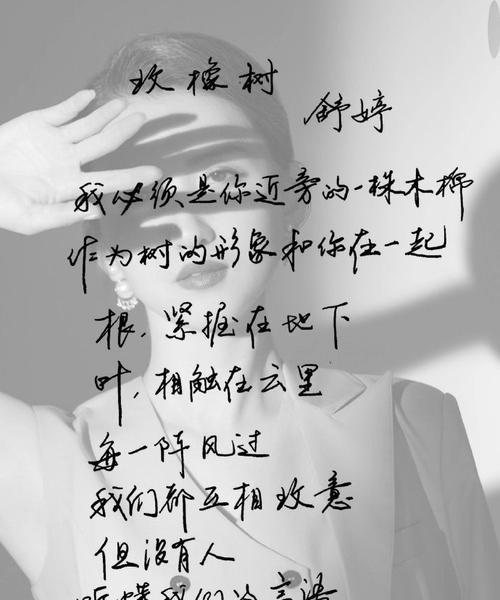 致橡树
舒婷
我必须是你近旁的一株木棉
作为树的形象和你在一起
根，紧握在地下
叶，相触在云里
每一阵风过
我们都互相致意
但没有人
听懂我们的言语